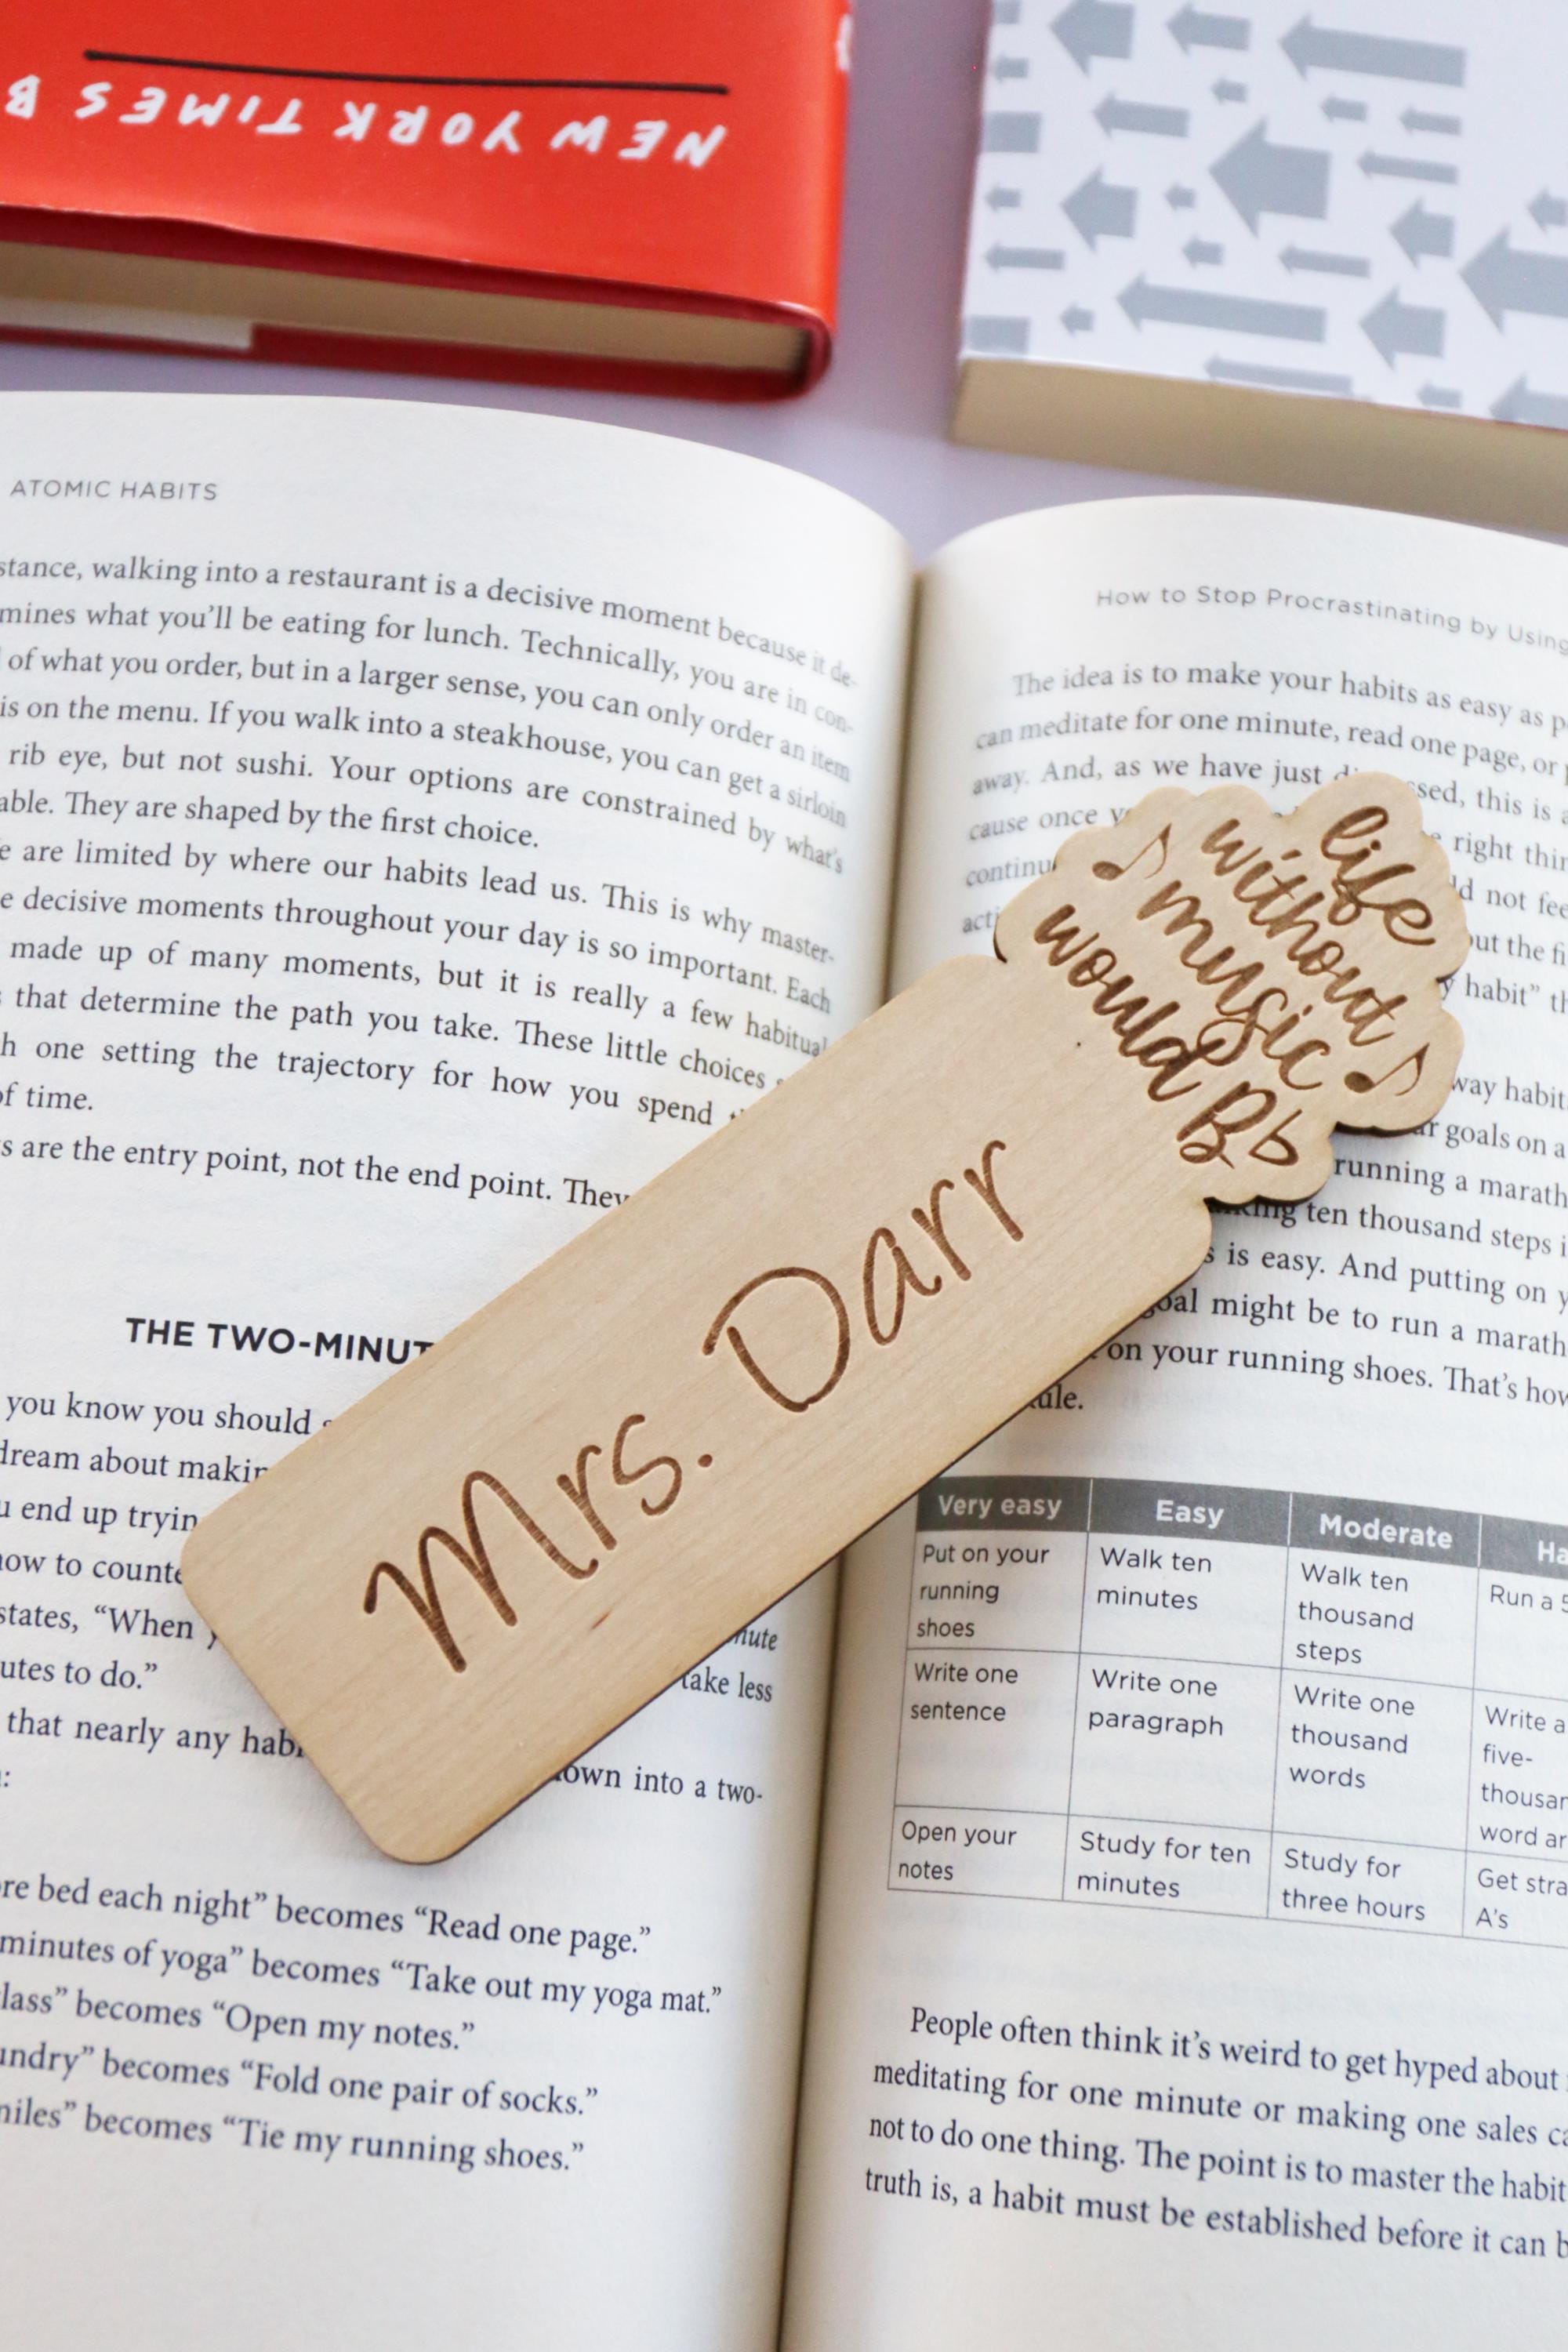 NEW YORK TIMES B
ATOMIC HABITS
stance, walking into a restaurant is a decisive moment because it de-
mines what you'll be eating for lunch. Technically, you are in con-
of what you order, but in a larger sense, you can only order an item
is on the menu. If you walk into a steakhouse, you can get a sirloin
rib eye, but not sushi. Your options are constrained by what's
able. They are shaped by the first choice.
e are limited by where our habits lead us. This is why master-
e decisive moments throughout your day is so important. Each
made up of many moments, but it is really a few habitual
that determine the path you take. These little choices
h one setting the trajectory for how you spend
of time.
s are the entry point, not the end point. They
THE TWO-MINUT
you know you should
dream about makin
u end up tryin
how to counte
states, "When
nute
utes to do."
take less
that nearly any habi
down into a two-
:
re bed each night" becomes "Read one page."
minutes of yoga" becomes "Take out my yoga mat."
lass" becomes "Open my notes."
undry" becomes "Fold one pair of socks."
miles" becomes "Tie my running shoes."
life
without
♪ music ♪
would Bb
Mrs. Darr
How to Stop Procrastinating by Using
The idea is to make your habits as easy as p
can meditate for one minute, read one page, or
away. And, as we have just di ssed, this is a
cause once y right thin
continu d not fee
acti but the fi
y habit" th
way habit
ar goals on a
running a marath
king ten thousand steps i
s is easy. And putting on y
goal might be to run a marath
on your running shoes. That's how
ule.
Very easy Easy Moderate Ha
Put on your running shoes Walk ten minutes Walk ten thousand steps Run a 5
Write one sentence Write one paragraph Write one thousand words Write a five-thousan word ar
Open your notes Study for ten minutes Study for three hours Get stra A's
People often think it's weird to get hyped about
meditating for one minute or making one sales ca
not to do one thing. The point is to master the habit
truth is, a habit must be established before it can b